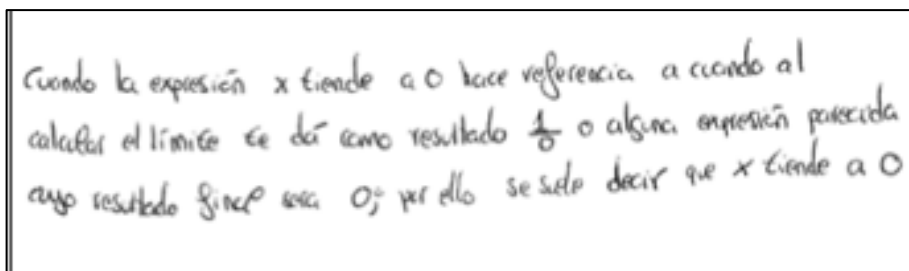 Cuando la expresión x tiende a 0 hace referencia a cuando al
calcular el límite te dá como resultado 1/0 o alguna expresión parecida
cuyo resultado final sea 0; por ello se suele decir que x tiende a 0